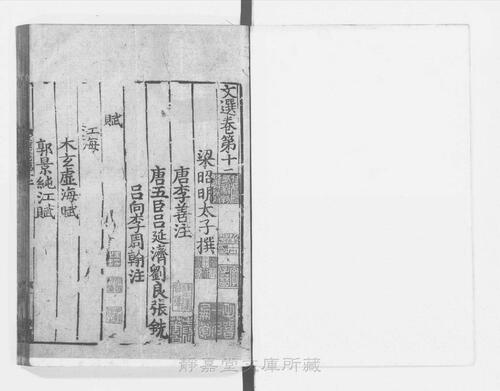 文選卷第十二
梁昭明太子撰
唐李善注
唐五臣呂延濟劉良張銑
呂向李周翰注
賦
江海
木玄虛海賦
郭景純江賦
靜嘉堂文庫所藏